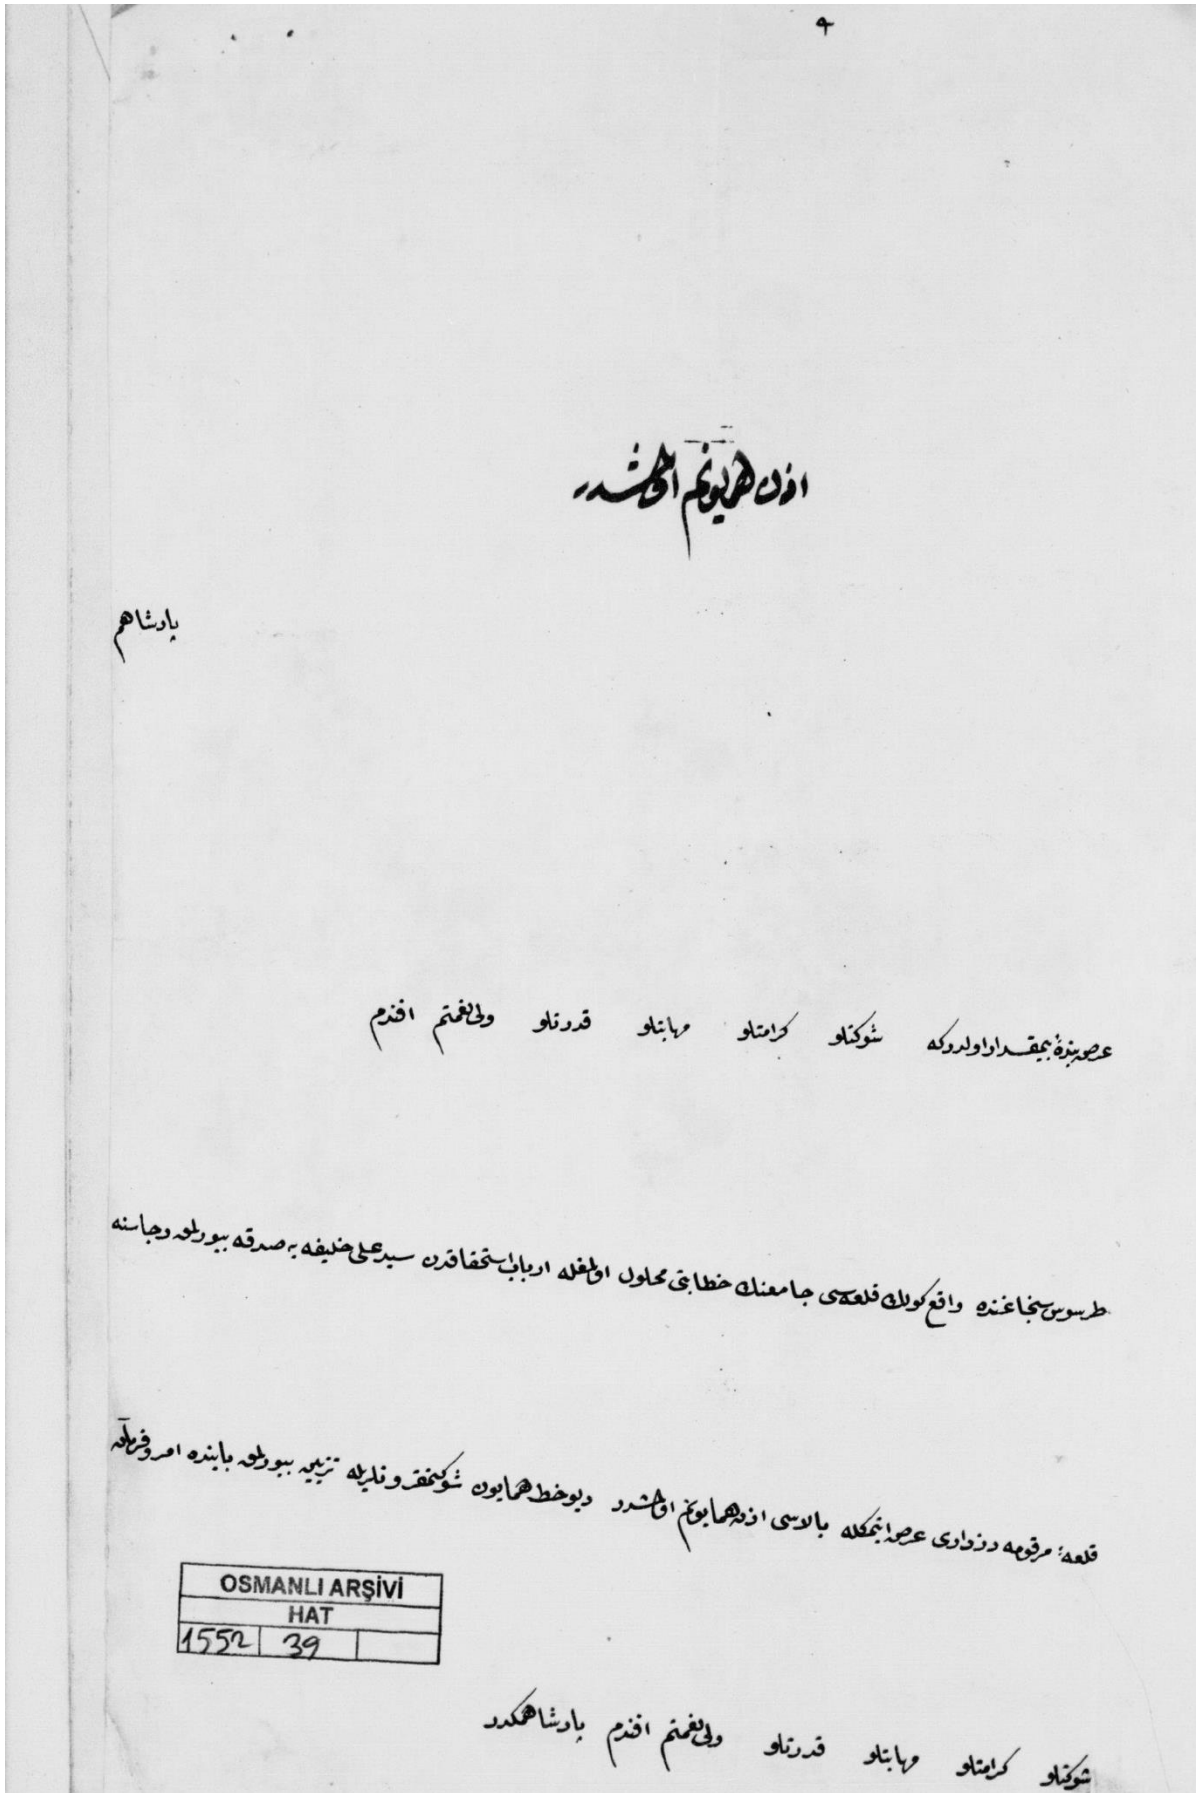 ٩
اذن همايونم اولمشدر
پادشاهم
عرض بندهٔ بيمقدار اولدركه شوكتلو كرامتلو مهابتلو قدرتلو ولى نعمتم افندم
طرسوس سنجاغنده واقع كولك قلعه‌سى جامعنك خطابتى محلول اولمغله ارباب استحقاقدن سيد على خليفه‌يه صدقه بيورلمق رجاسنه
قلعهٔ مرقومه دزدارى عرض ايتمكله بالاسى اذن همايونم اولمشدر ديو خط همايون شوكتمقرونلريله تزيين بيورلمق بابنده امر و فرمان
OSMANLI ARŞİVİ
HAT
1552 39
شوكتلو كرامتلو مهابتلو قدرتلو ولى نعمتم افندم پادشاهمكدر